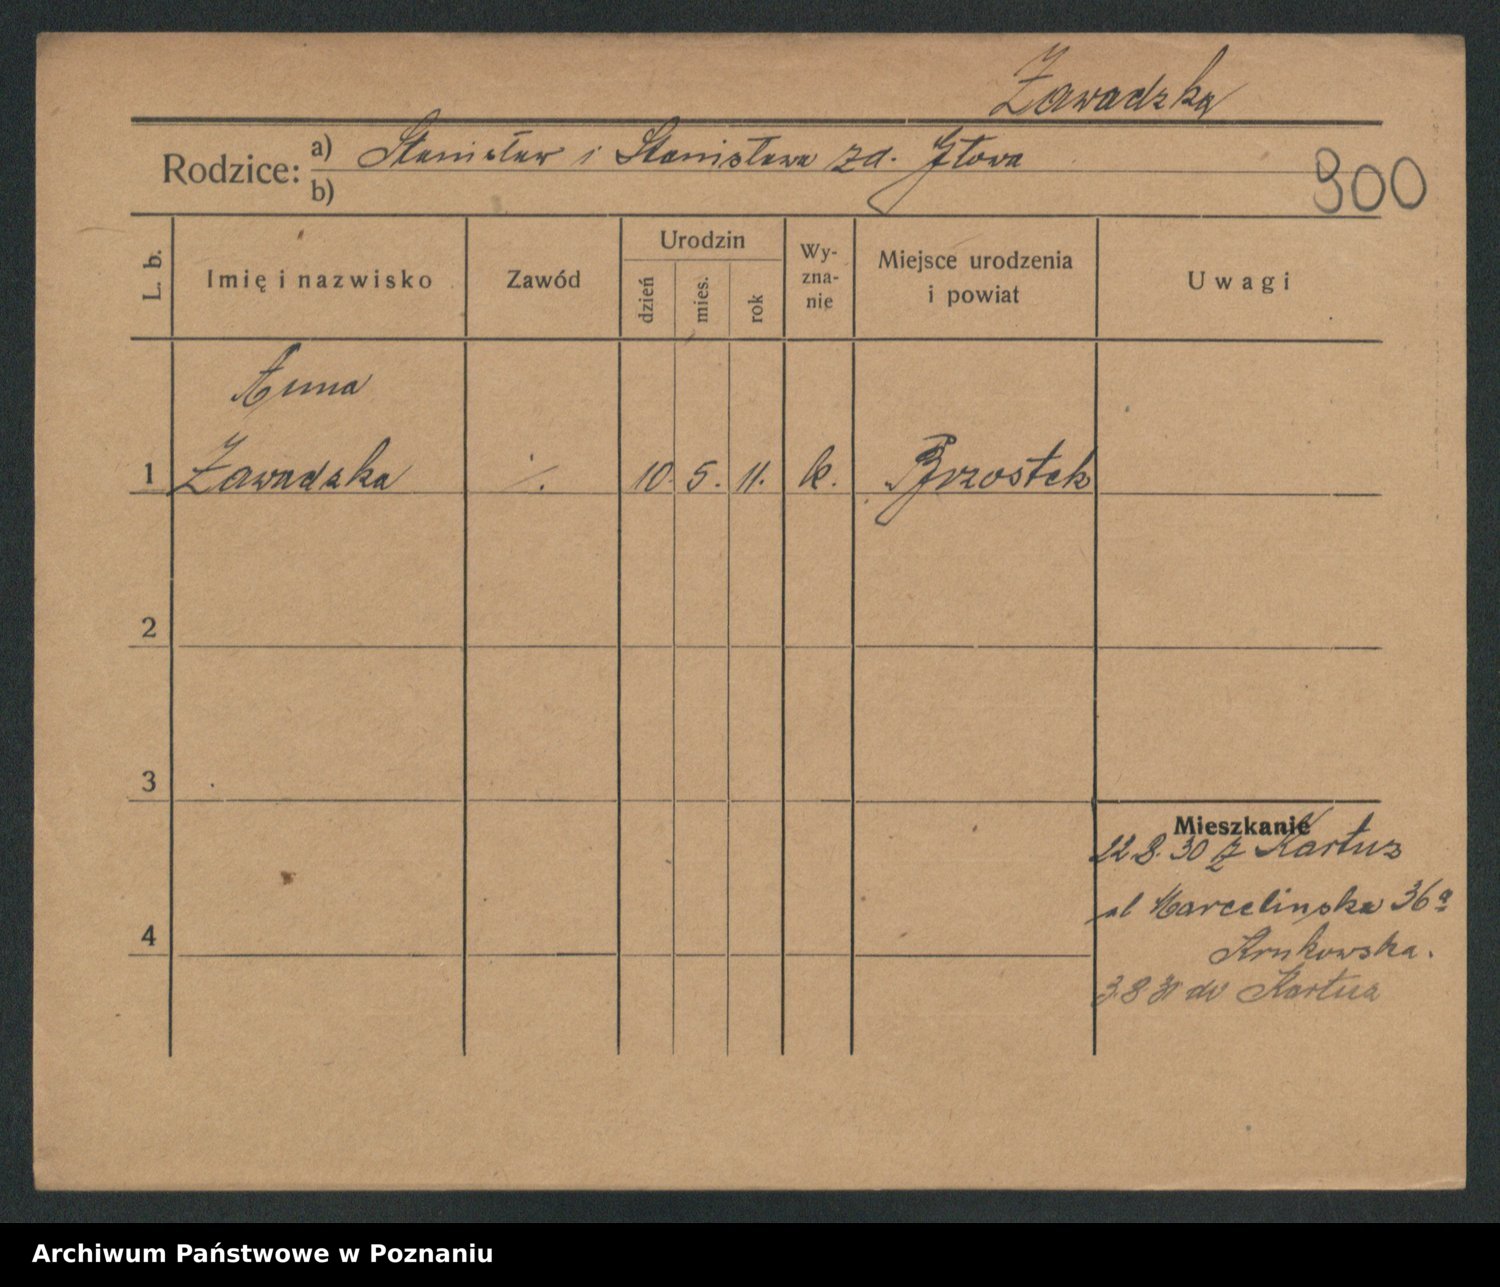 Zawadzka
Rodzice: a) Stanisław i Stanisława zd. Głowa
b)
900
L. b.
Imię i nazwisko
Zawód
Urodzin
dzień
mies.
rok
Wy-
zna-
nie
Miejsce urodzenia
i powiat
Uwagi
Anna
1 Zawadzka ·/. 10. 5. 11. k. Brzostek
2
3
Mieszkanie
22 8. 30 z Kartuz
ul Marcelińska 36a
4
Krukowska.
do Kartuz
Archiwum Państwowe w Poznaniu